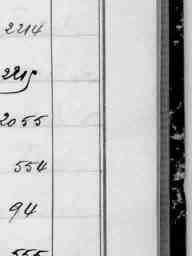 2214
2215
2055
554
94
555